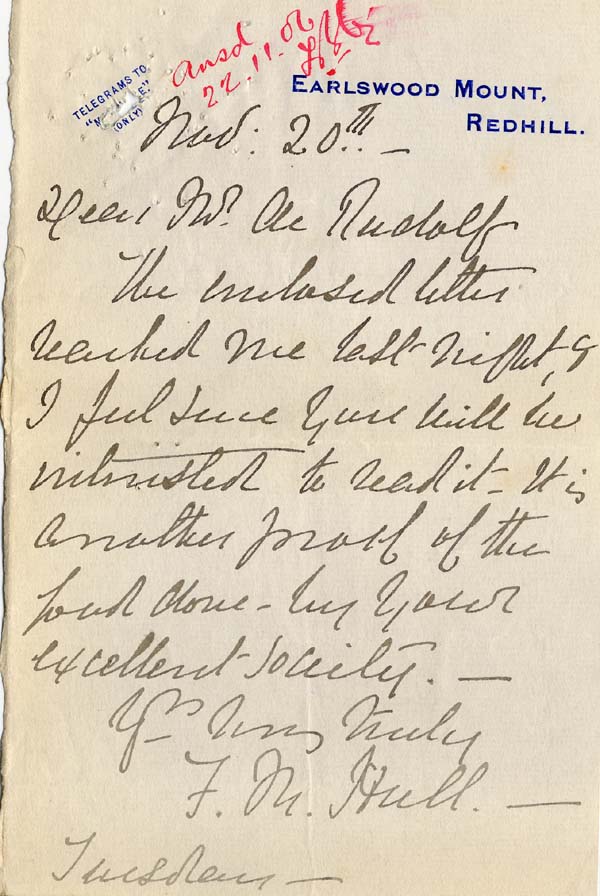 TELEGRAMS TO
(ONLY)
ansd
22.11.06
EARLSWOOD MOUNT,
REDHILL.
Nov: 20th. —
Dear Mr. de Rudolf
The enclosed letter
reached me last night, &
I feel sure you will be
interested to read it — It is
another proof of the
good done — by your
excellent Society. —
Yrs very truly
F. M. Hull. —
Tuesday —